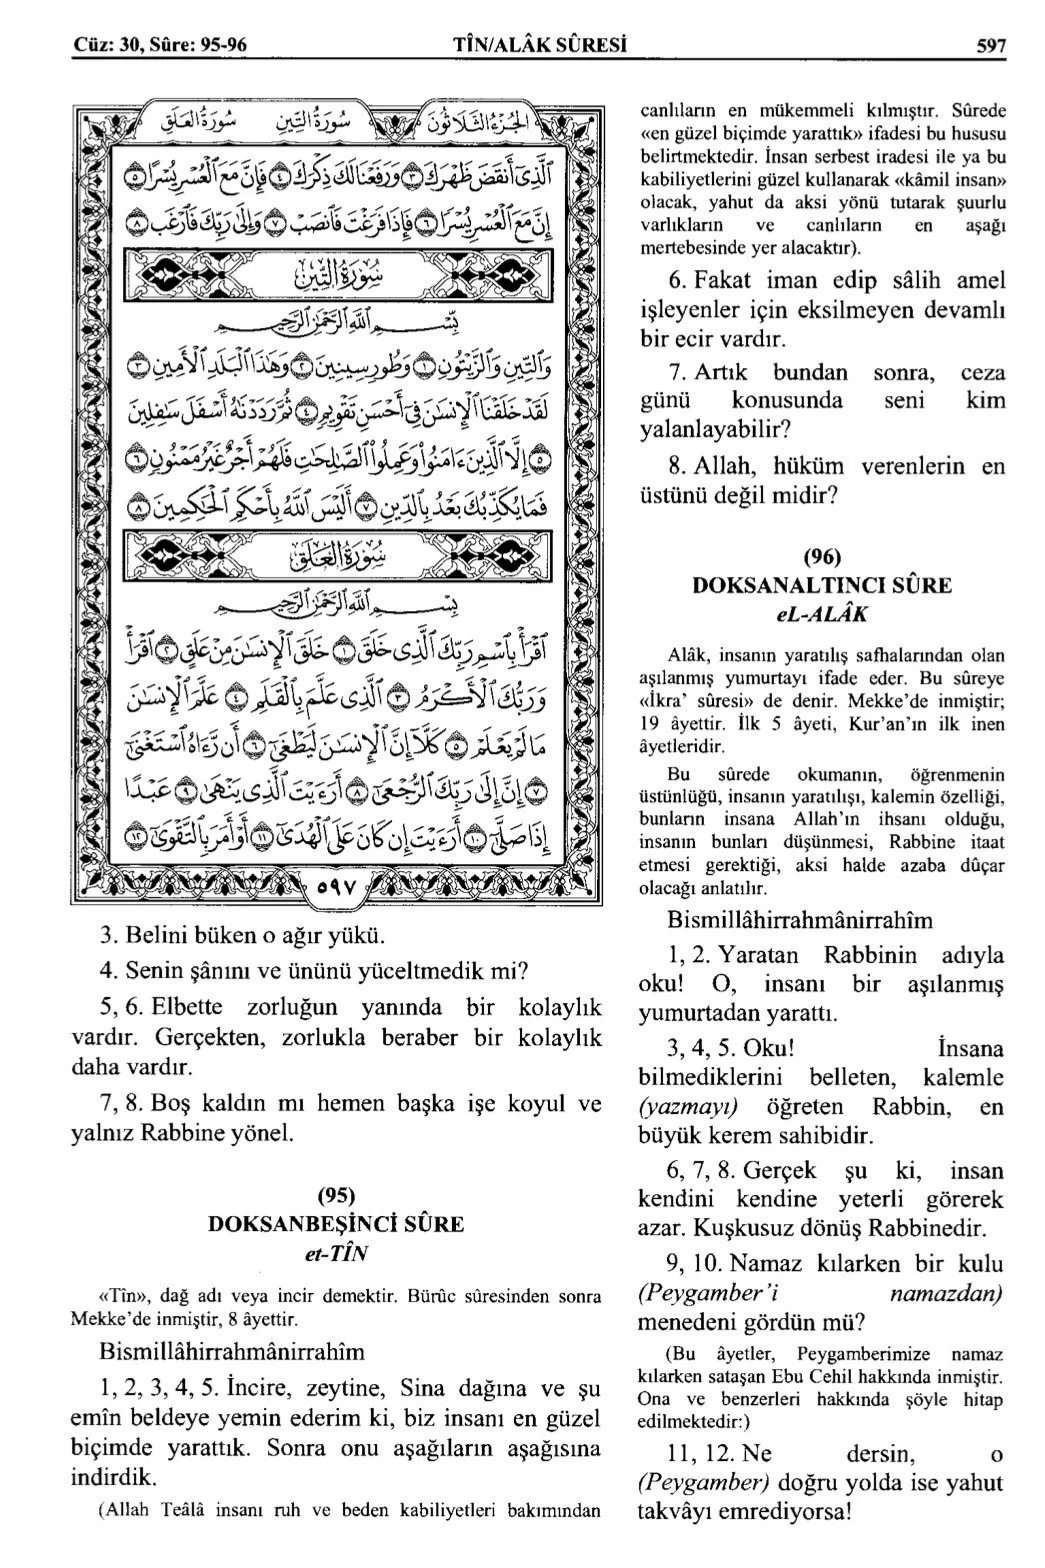 Cüz: 30, Sûre: 95-96 TÎN/ALÂK SÛRESİ 597
الجزء الثلاثون سورة التين سورة العلق
ٱلَّذِىٓ أَنقَضَ ظَهْرَكَ ٣ وَرَفَعْنَا لَكَ ذِكْرَكَ ٤ فَإِنَّ مَعَ ٱلْعُسْرِ يُسْرًا ٥
إِنَّ مَعَ ٱلْعُسْرِ يُسْرًا ٦ فَإِذَا فَرَغْتَ فَٱنصَبْ ٧ وَإِلَىٰ رَبِّكَ فَٱرْغَب ٨
سُورَةُ التِّينِ
بِسْمِ ٱللَّهِ ٱلرَّحْمَٰنِ ٱلرَّحِيمِ
وَٱلتِّينِ وَٱلزَّيْتُونِ ١ وَطُورِ سِينِينَ ٢ وَهَٰذَا ٱلْبَلَدِ ٱلْأَمِينِ ٣
لَقَدْ خَلَقْنَا ٱلْإِنسَٰنَ فِىٓ أَحْسَنِ تَقْوِيمٍ ٤ ثُمَّ رَدَدْنَٰهُ أَسْفَلَ سَٰفِلِينَ
٥ إِلَّا ٱلَّذِينَ ءَامَنُوا۟ وَعَمِلُوا۟ ٱلصَّٰلِحَٰتِ فَلَهُمْ أَجْرٌ غَيْرُ مَمْنُونٍ ٦
فَمَا يُكَذِّبُكَ بَعْدُ بِٱلدِّينِ ٧ أَلَيْسَ ٱللَّهُ بِأَحْكَمِ ٱلْحَٰكِمِينَ ٨
سُورَةُ العَلَقِ
بِسْمِ ٱللَّهِ ٱلرَّحْمَٰنِ ٱلرَّحِيمِ
ٱقْرَأْ بِٱسْمِ رَبِّكَ ٱلَّذِى خَلَقَ ١ خَلَقَ ٱلْإِنسَٰنَ مِنْ عَلَقٍ ٢ ٱقْرَأْ
وَرَبُّكَ ٱلْأَكْرَمُ ٣ ٱلَّذِى عَلَّمَ بِٱلْقَلَمِ ٤ عَلَّمَ ٱلْإِنسَٰنَ
مَا لَمْ يَعْلَمْ ٥ كَلَّآ إِنَّ ٱلْإِنسَٰنَ لَيَطْغَىٰٓ ٦ أَن رَّءَاهُ ٱسْتَغْنَىٰٓ
٧ إِنَّ إِلَىٰ رَبِّكَ ٱلرُّجْعَىٰٓ ٨ أَرَءَيْتَ ٱلَّذِى يَنْهَىٰ ٩ عَبْدًا
إِذَا صَلَّىٰٓ ١٠ أَرَءَيْتَ إِن كَانَ عَلَى ٱلْهُدَىٰٓ ١١ أَوْ أَمَرَ بِٱلتَّقْوَىٰٓ ١٢
٥٩٧
3. Belini büken o ağır yükü.
4. Senin şânını ve ününü yüceltmedik mi?
5, 6. Elbette zorluğun yanında bir kolaylık
vardır. Gerçekten, zorlukla beraber bir kolaylık
daha vardır.
7, 8. Boş kaldın mı hemen başka işe koyul ve
yalnız Rabbine yönel.
(95)
DOKSANBEŞİNCİ SÛRE
et-TÎN
«Tîn», dağ adı veya incir demektir. Bürûc sûresinden sonra
Mekke’de inmiştir, 8 âyettir.
Bismillâhirrahmânirrahîm
1, 2, 3, 4, 5. İncire, zeytine, Sina dağına ve şu
emîn beldeye yemin ederim ki, biz insanı en güzel
biçimde yarattık. Sonra onu aşağıların aşağısına
indirdik.
(Allah Teâlâ insanı ruh ve beden kabiliyetleri bakımından
canlıların en mükemmeli kılmıştır. Sûrede
«en güzel biçimde yarattık» ifadesi bu hususu
belirtmektedir. İnsan serbest iradesi ile ya bu
kabiliyetlerini güzel kullanarak «kâmil insan»
olacak, yahut da aksi yönü tutarak şuurlu
varlıkların ve canlıların en aşağı
mertebesinde yer alacaktır).
6. Fakat iman edip sâlih amel
işleyenler için eksilmeyen devamlı
bir ecir vardır.
7. Artık bundan sonra, ceza
günü konusunda seni kim
yalanlayabilir?
8. Allah, hüküm verenlerin en
üstünü değil midir?
(96)
DOKSANALTINCI SÛRE
eL-ALÂK
Alâk, insanın yaratılış safhalarından olan
aşılanmış yumurtayı ifade eder. Bu sûreye
«İkra’ sûresi» de denir. Mekke’de inmiştir;
19 âyettir. İlk 5 âyeti, Kur’an’ın ilk inen
âyetleridir.
Bu sûrede okumanın, öğrenmenin
üstünlüğü, insanın yaratılışı, kalemin özelliği,
bunların insana Allah’ın ihsanı olduğu,
insanın bunları düşünmesi, Rabbine itaat
etmesi gerektiği, aksi halde azaba dûçar
olacağı anlatılır.
Bismillâhirrahmânirrahîm
1, 2. Yaratan Rabbinin adıyla
oku! O, insanı bir aşılanmış
yumurtadan yarattı.
3, 4, 5. Oku! İnsana
bilmediklerini belleten, kalemle
(yazmayı) öğreten Rabbin, en
büyük kerem sahibidir.
6, 7, 8. Gerçek şu ki, insan
kendini kendine yeterli görerek
azar. Kuşkusuz dönüş Rabbinedir.
9, 10. Namaz kılarken bir kulu
(Peygamber’i namazdan)
menedeni gördün mü?
(Bu âyetler, Peygamberimize namaz
kılarken sataşan Ebu Cehil hakkında inmiştir.
Ona ve benzerleri hakkında şöyle hitap
edilmektedir:)
11, 12. Ne dersin, o
(Peygamber) doğru yolda ise yahut
takvâyı emrediyorsa!